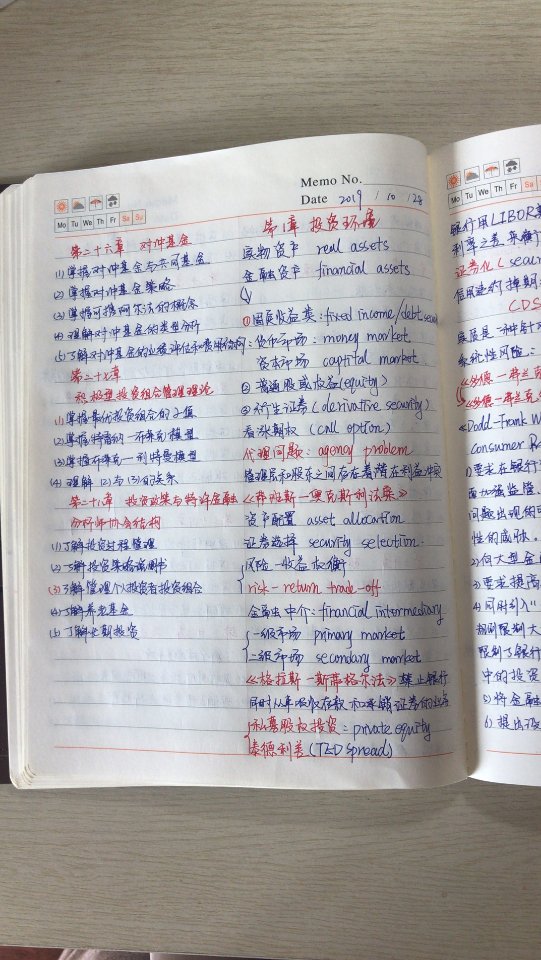 Memo No.
Date 2019 / 10 / 28
Mo Tu We Th Fr Sa Su
第二十六章 对冲基金
(1)掌握对冲基金与共同基金
(2)掌握对冲基金策略
(3)掌握可携阿尔法的概念
(4)理解对冲基金的类型分析
(5)了解对冲基金的业绩评估和费用结构
第二十七章
积极型投资组合管理理论
(1)掌握最优投资组合的α值
(2)掌握特雷纳-布莱克模型
(3)掌握布莱克-利特曼模型
(4)理解(2)与(3)的关系
第二十八章 投资政策与特许金融
分析师协会结构
(1)了解投资过程管理
(2)了解投资策略说明书
(3)了解管理个人投资者投资组合
(4)了解养老基金
(5)了解长期投资
第1章 投资环境
实物资产 real assets
金融资产 financial assets
①固定收益类:fixed income/debt
货币市场:money market
资本市场 capital market
②普通股或权益(equity)
③衍生证券(derivative security)
看涨期权(call option)
代理问题:agency problem
管理层和股东之间存在着潜在利益冲突
《萨班斯-奥克斯利法案》
资产配置 asset allocation
证券选择 security selection.
风险-收益权衡
risk-return trade-off
金融中介:financial intermediary
一级市场 primary market
二级市场 secondary market
《格拉斯-斯蒂格尔法》禁止银行
同时从事吸收存款和承销证券的业务
私募股权投资:private equity
泰德利差(TED spread)
Mo Tu We Th Fr Sa
银行用LIBOR
利率之差来衡
证券化(secur
信用违约掉期
CDS
系统性风险:
《多德-弗兰克
《多德-弗兰克
《Dodd-Frank W
Consumer
1)要求在银行
面加强监管,
问题出现的可
性的威胁。
3)要求提高
4)同时引入"
规则限制大
限制了银行
中的投资
5)将金融
6)提出设